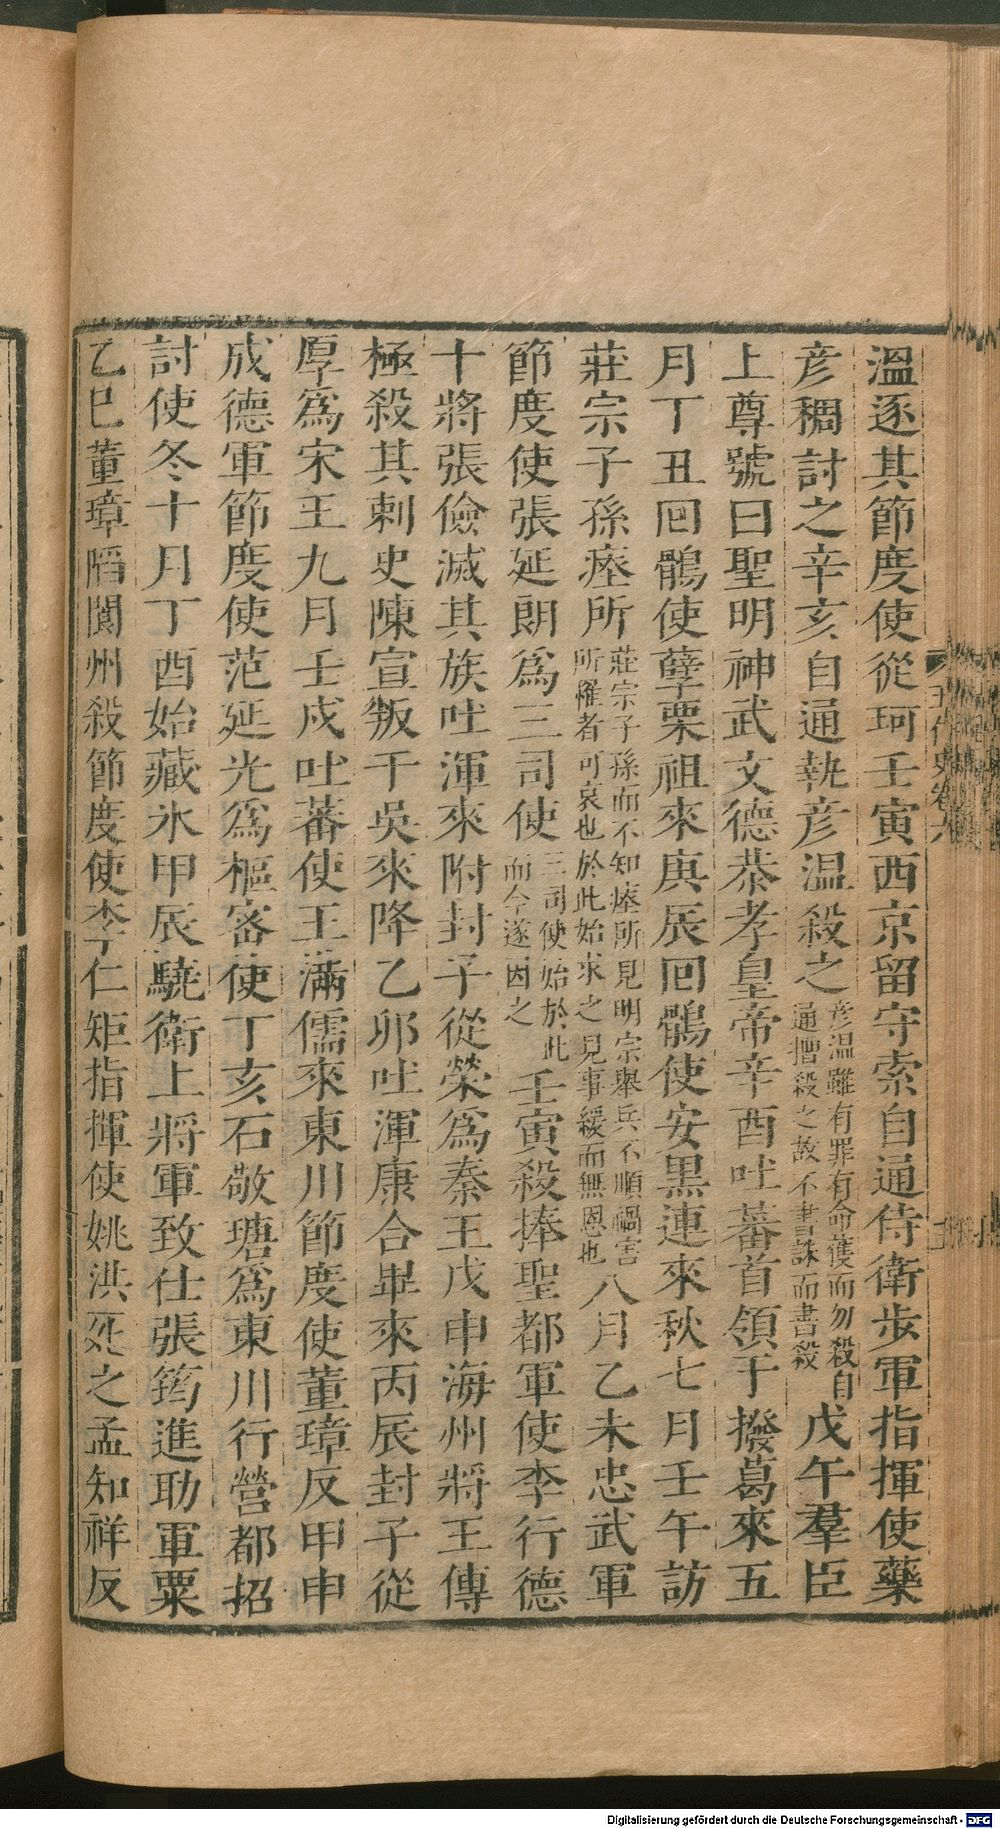 溫逐其節度使從珂壬寅西京留守索自通侍衛步軍指揮使藥
彥稠討之辛亥自通執彥溫殺之彥溫雖有罪有命獲而勿殺自通擅殺之故不書誅而書殺戊午羣臣
上尊號曰聖明神武文德恭孝皇帝辛酉吐蕃首領于撥葛來五
月丁丑回鶻使孽栗祖來庚辰回鶻使安黑連來秋七月壬午訪
莊宗子孫瘞所莊宗子孫而不知瘞所見明宗舉兵不順禍害所罹者可哀也於此始求之見事緩而無恩也八月乙未忠武軍
節度使張延朗爲三司使三司使始於此而今遂因之壬寅殺捧聖都軍使李行德
十將張儉滅其族吐渾來附封子從榮爲秦王戊申海州將王傳
極殺其刺史陳宣叛于吳來降乙卯吐渾康合畢來丙辰封子從
厚爲宋王九月壬戌吐蕃使王滿儒來東川節度使董璋反甲申
成德軍節度使范延光爲樞密使丁亥石敬瑭爲東川行營都招
討使冬十月丁酉始藏冰甲辰驍衛上將軍致仕張筠進助軍粟
乙巳董璋陷閬州殺節度使李仁矩指揮使姚洪死之孟知祥反
五代史卷六
Digitalisierung gefördert durch die Deutsche Forschungsgemeinschaft - DFG